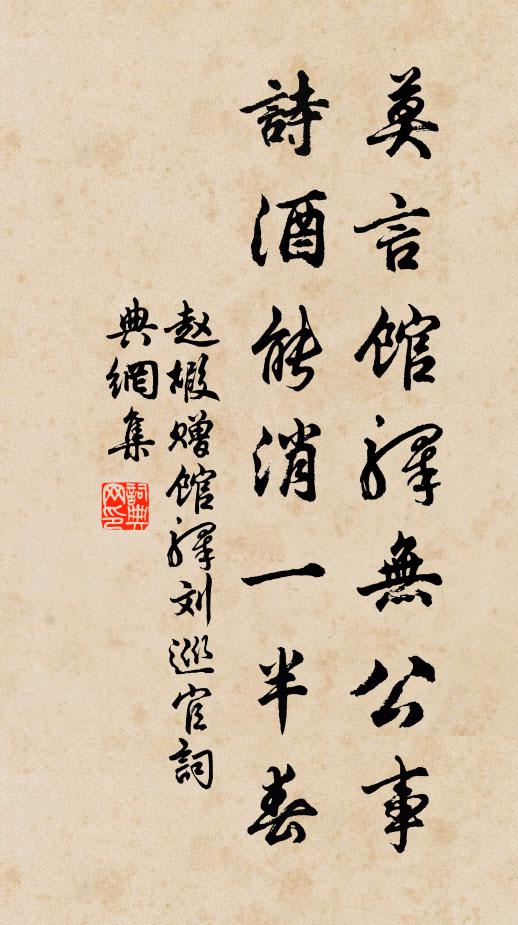 莫言馆驛無公事
詩酒能消一半春
赵嘏赠馆驛刘巡官詞
典網集
詞典
网印